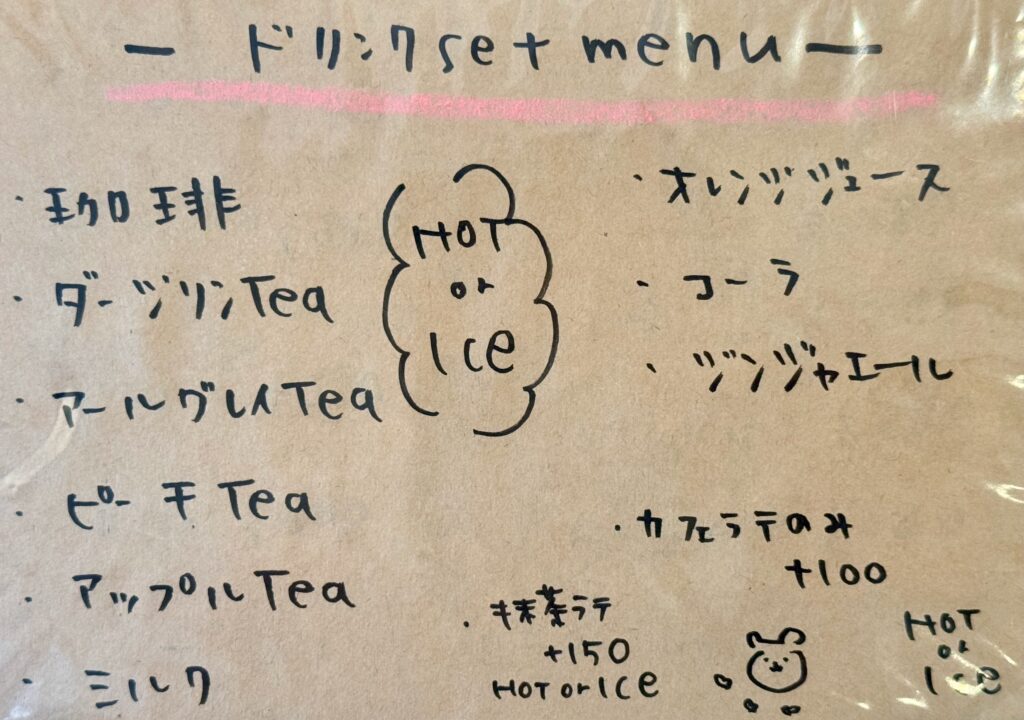 ー ドリンクset menu ー
・珈琲
・ダージリンTea
・アールグレイTea
・ピーチTea
・アップルTea
・ミルク
HOT
or
Ice
・オレンジジュース
・コーラ
・ジンジャエール
・カフェラテのみ
+100
HOT
or
Ice
・抹茶ラテ
+150
HOT or Ice